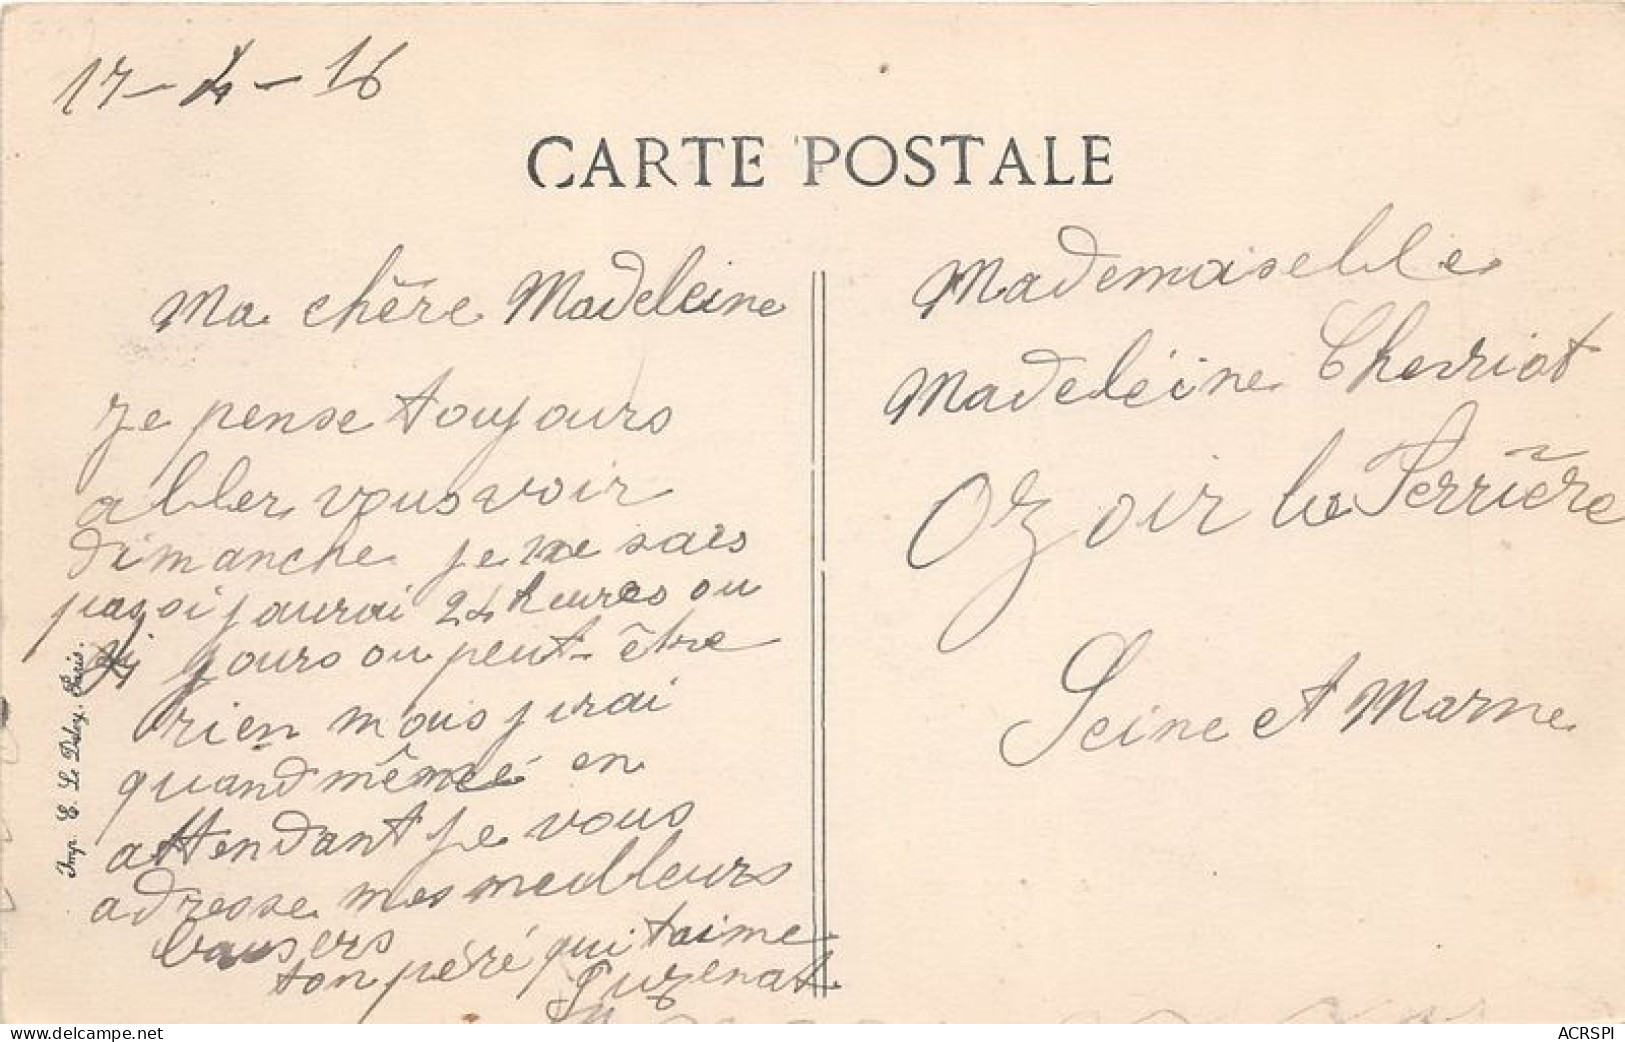 17-4-16
CARTE POSTALE
Ma chère Madeleine
je pense toujours
aller vous voir
dimanche je ne sais
pas si j aurai 24 heures ou
4 jours ou peut-être
rien mais j irai
quand même en
attendant je vous
adresse mes meilleurs
baisers
ton père qui t aime
Mademaiselle
Madeléine Cherriot
Ozoir la Ferrière
Seine et Marne
Imp. E. Le Deley, Paris.
ACRSPI